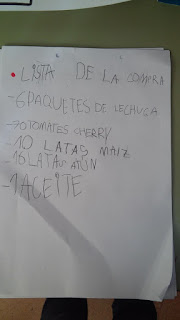 • LISTA DE LA COMPRA
-6 PAQUETES DE LECHUGA
-70 TOMATES CHERRY
-10 LATAS MAIZ
-16 LATAS ATÚN
-1 ACEITE